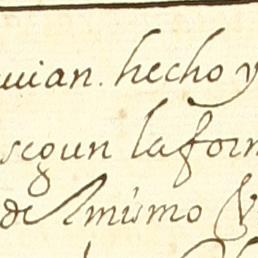 uian. hecho y
segun la for
de l mismo